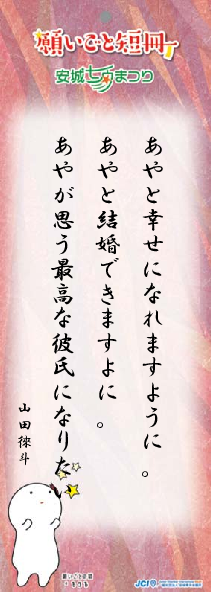 願いごと短冊
安城七夕まつり
あやと幸せになれますように。
あやと結婚できますよに。
あやが思う最高な彼氏になりた
山田徠斗
願いごと短冊
JCI